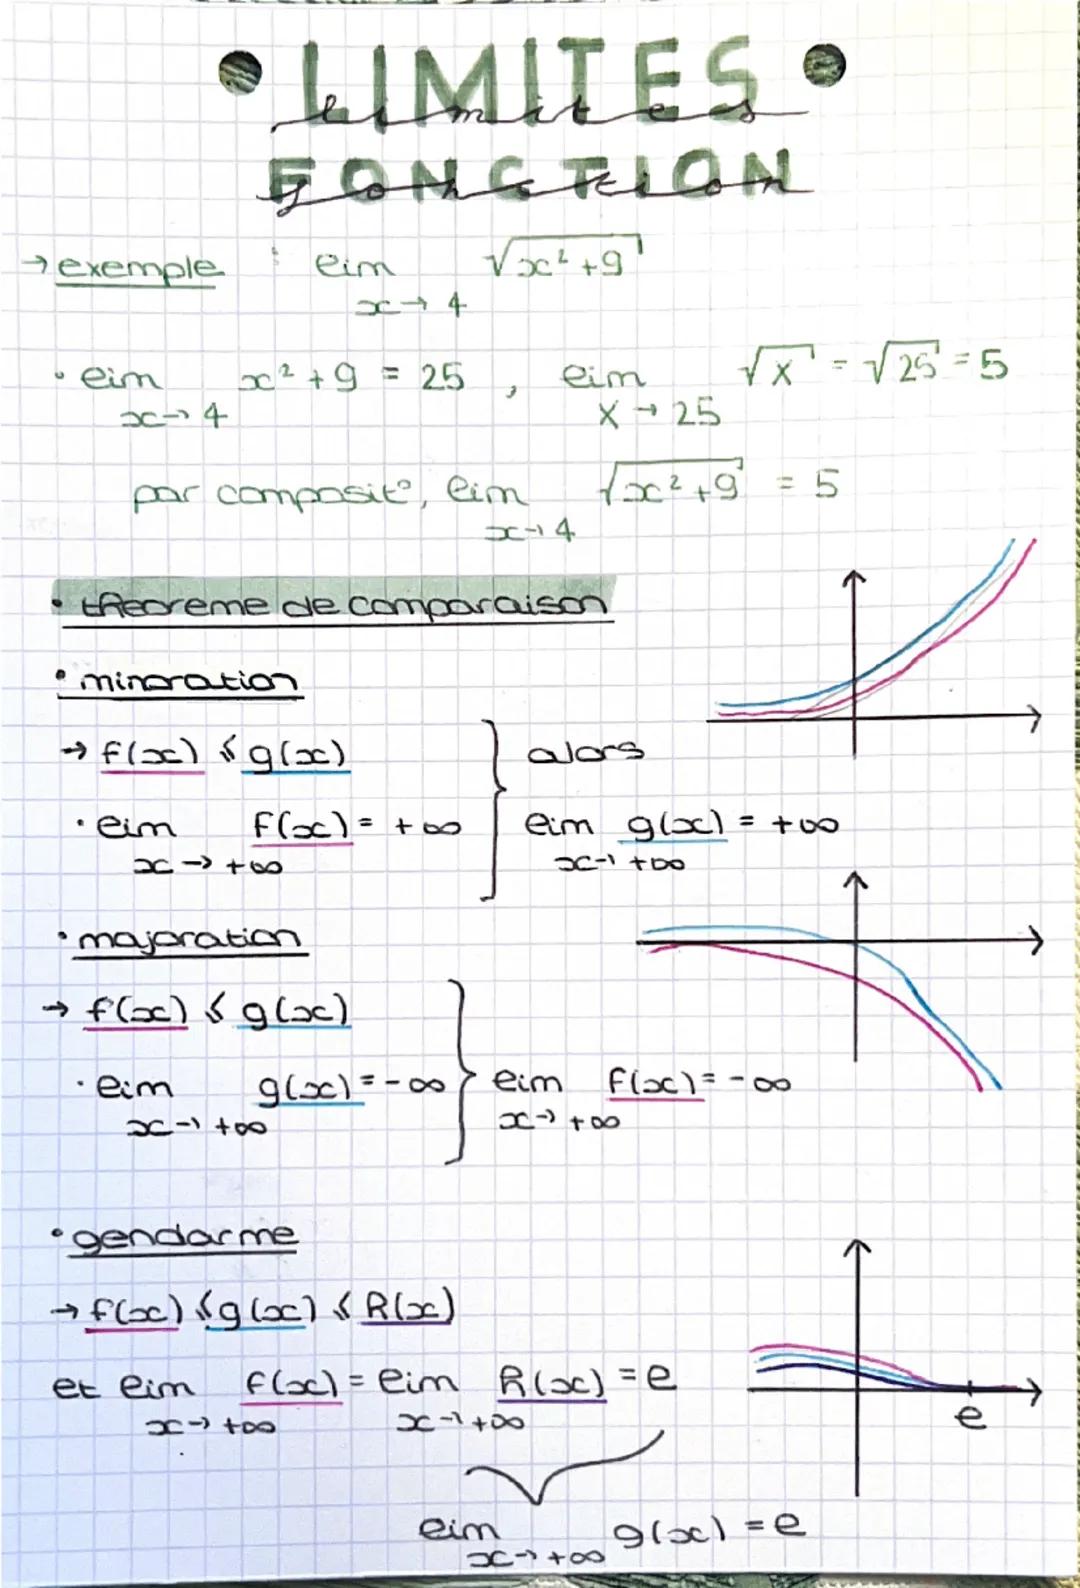 • LIMITES •
limites
FONCTION
fonction
→ exemple : lim √x²+9
x → 4
• lim x² + 9 = 25 , lim √X = √25 = 5
x → 4 X → 25
par composit°, lim √x²+9 = 5
x → 4
• theoreme de comparaison
• minoration
→ f(x) ≤ g(x) alors
• lim f(x) = +∞ lim g(x) = +∞
x → +∞ x → +∞
• majoration
→ f(x) ≤ g(x)
• lim g(x) = -∞ lim f(x) = -∞
x → +∞ x → +∞
• gendarme
→ f(x) ≤ g(x) ≤ h(x)
et lim f(x) = lim h(x) = l
x → +∞ x → +∞
l
lim g(x) = l
x → +∞